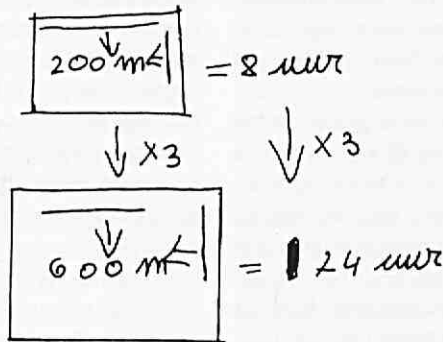 200 m = 8 uur
x3 x3
600 m = 24 uur